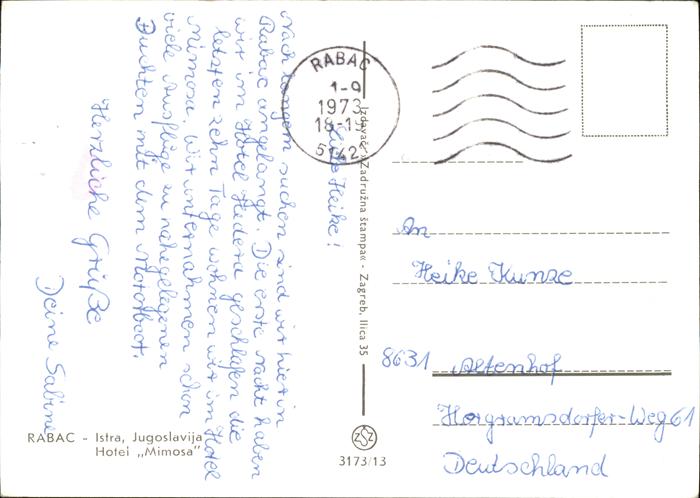 Liebe Heike!
Nach langem suchen sind wir hier in
Rabac angelangt. Die erste Nacht haben
wir im Hotel Hedera geschlafen die
letzten zehn Tage wohnen wir im Hotel
Mimosa. Wir unternahmen schon
viele Ausflüge zu nahegelegenen
Buchten mit dem Motorboot.
Herzliche Grüße
Deine Sabine
RABAC - Istra, Jugoslavija
Hotel „Mimosa"
Izdavač: »Zadružna štampa« - Zagreb, Ilica 35
3173/13
RABAC
1-9
1973
18-19
51421
An
Heike Kunze
8631 Altenhof
Horgramsdorfer-Weg 61
Deutschland